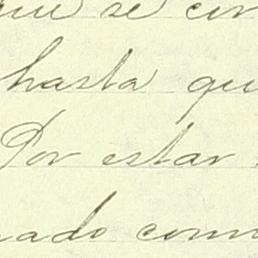 que se cir
hasta qu
Por estar
nado com